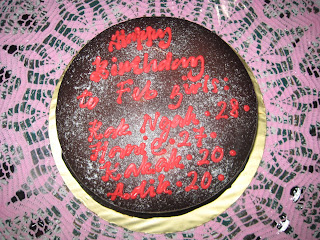 Happy
Birthday
to Feb Girls:
Kak Ngah • 28 •
• 27 •
• 20 •
Adik • 20 •